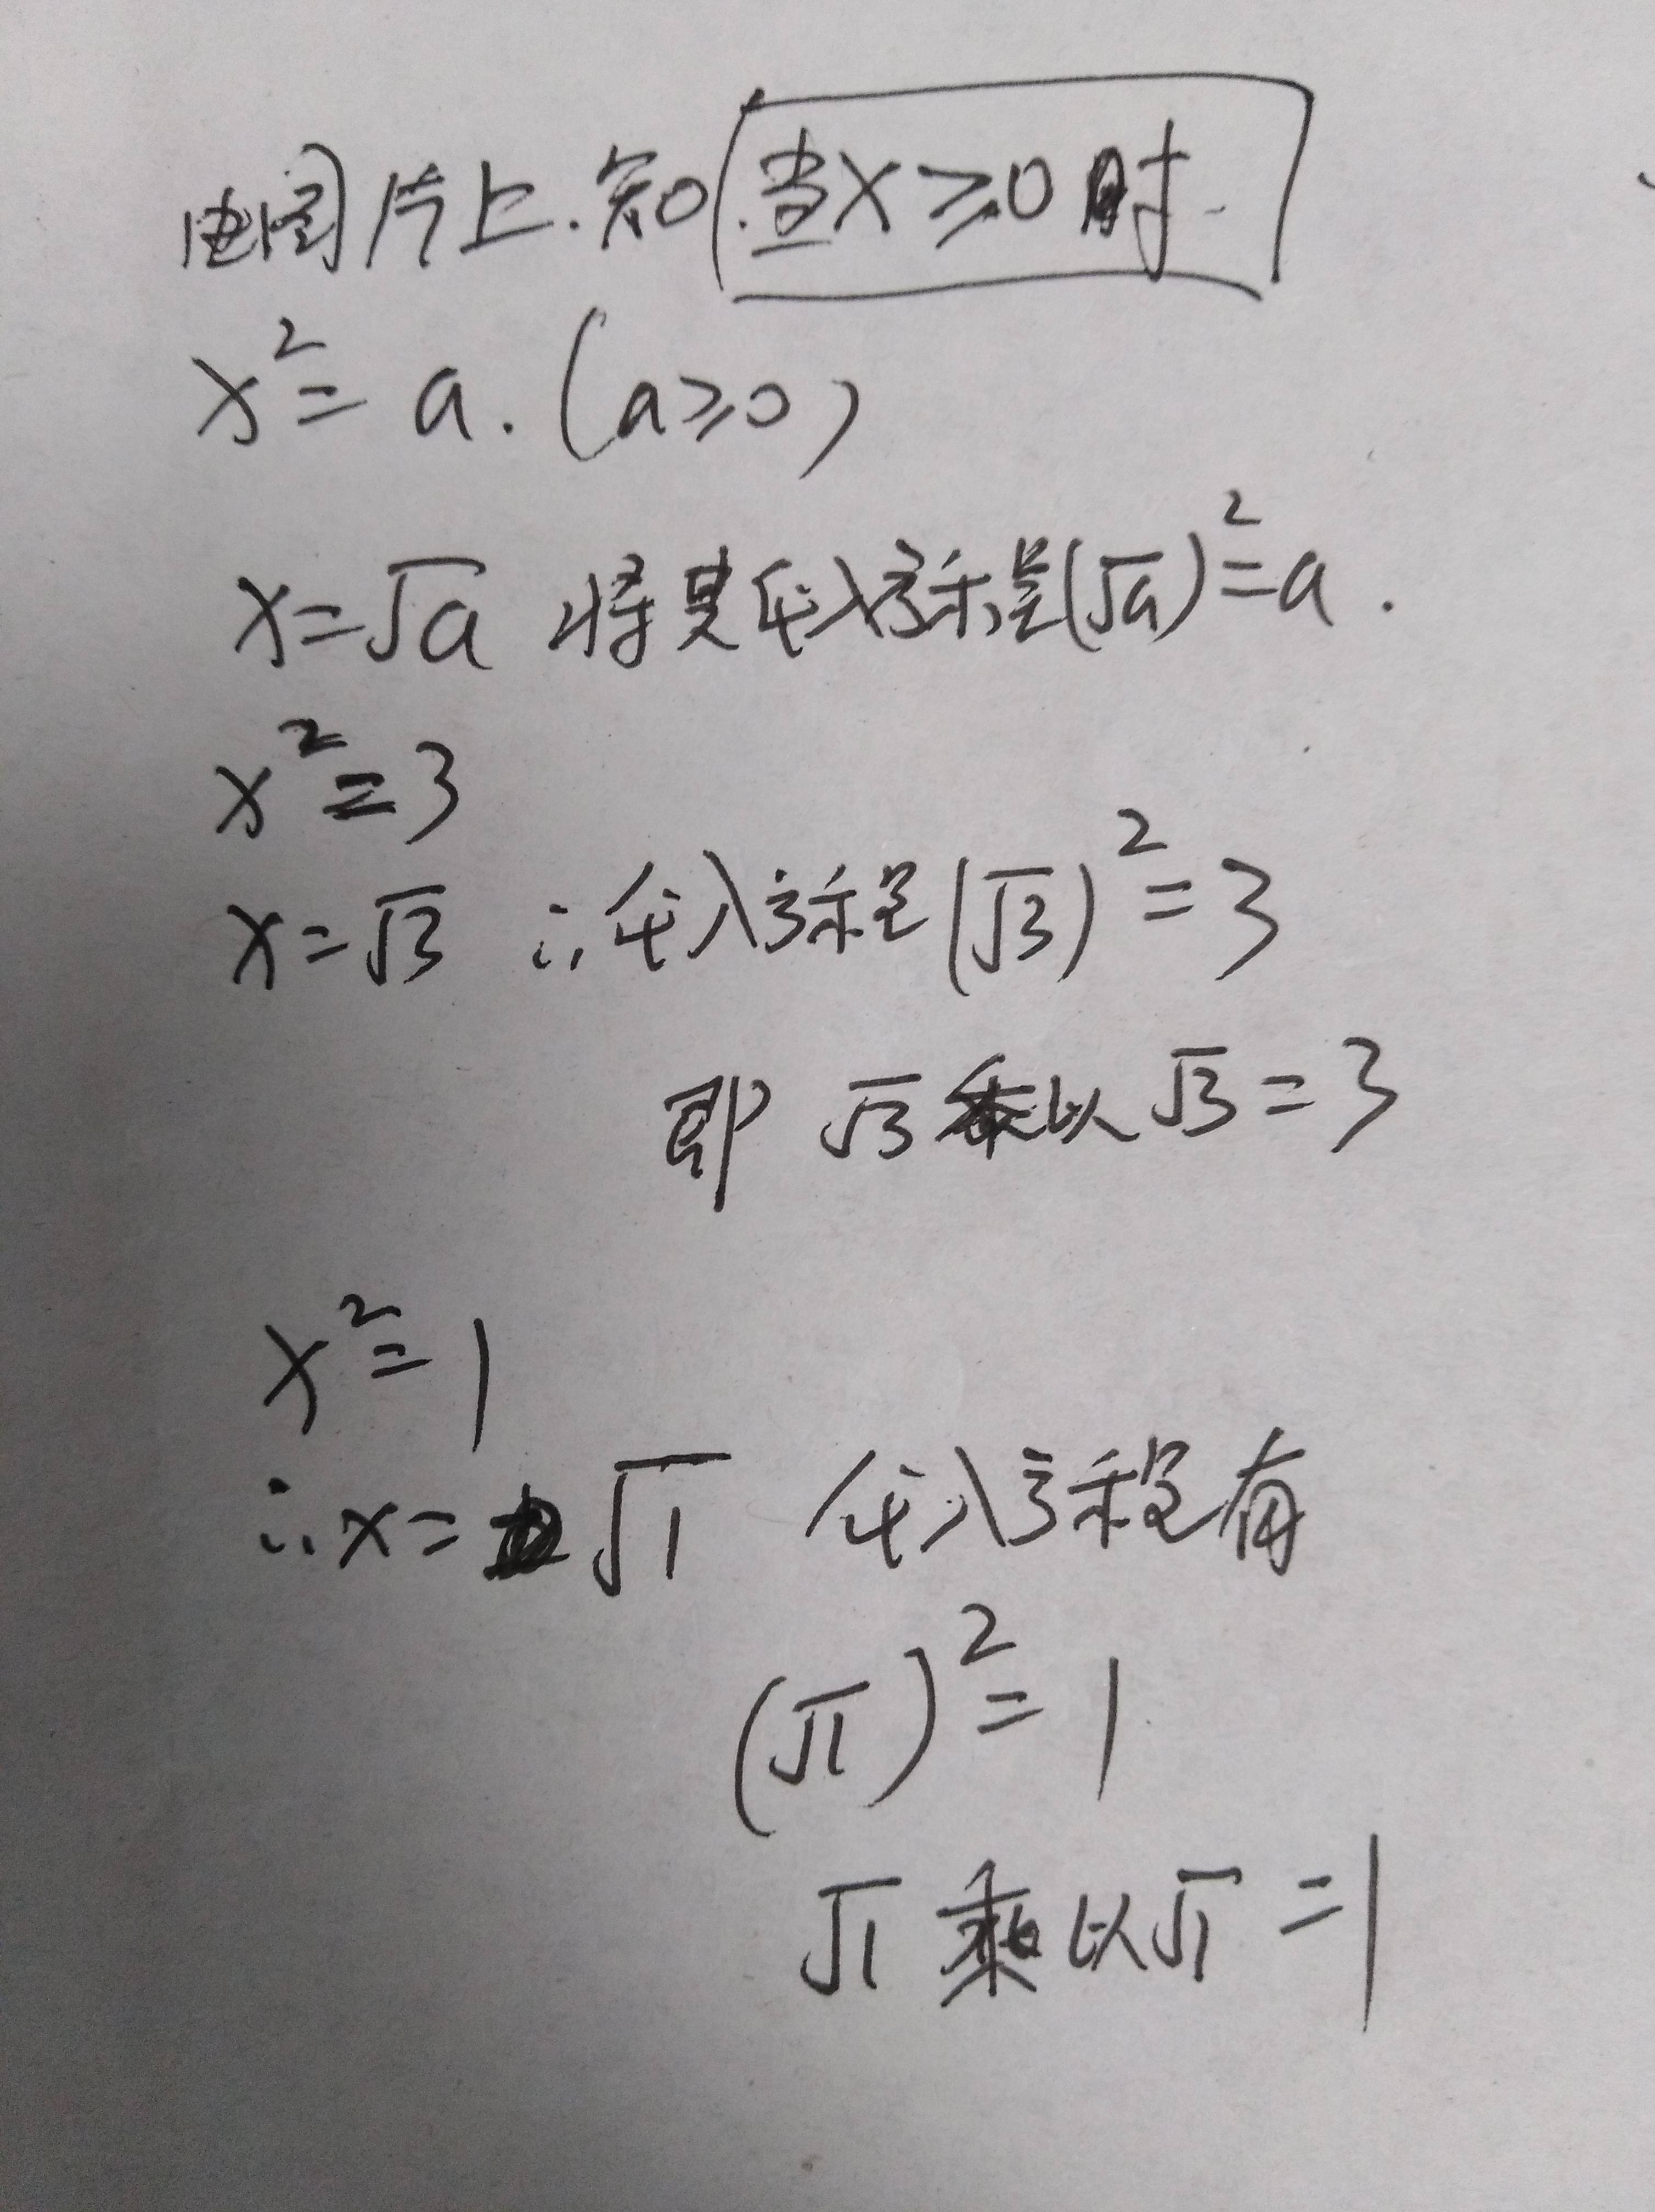 由图片上.知.当x≥0时.
x²=a.(a≥0)
x=√a 将其代入方程(√a)²=a.
x²=3
x=√3 ∴代入方程(√3)²=3
即 √3乘以√3=3
x²=1
∴x=√1 代入方程有
(√1)²=1
√1乘以√1=1